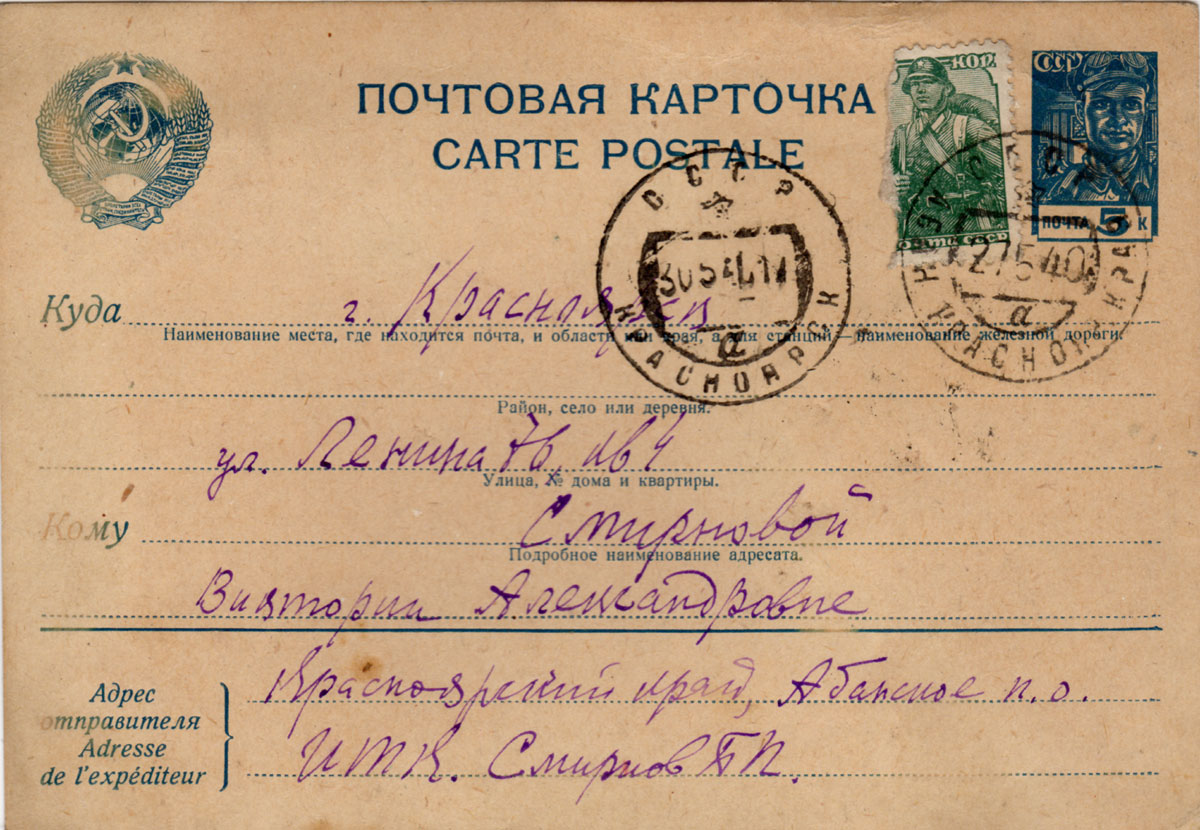 ПОЧТОВАЯ КАРТОЧКА
CARTE POSTALE
КОП.
ПОЧТА СССР
СССР
ПОЧТА 5 К
СССР
КРАСНОЯРСК
а
СССР
27 5 40
КРАСНОЯР КРАЯ
а
Куда г. Красноярск
Наименование места, где находится почта, и области или края, а для станций—наименование железной дороги.
Район, село или деревня.
ул. Ленина 76 кв 4
Улица, № дома и квартиры.
Кому Смирновой
Подробное наименование адресата.
Виктории Александровне
Адрес отправителя
Adresse de l'expéditeur
Красноярский край, Абанское п.о.
ИТК. Смирнов Б П.